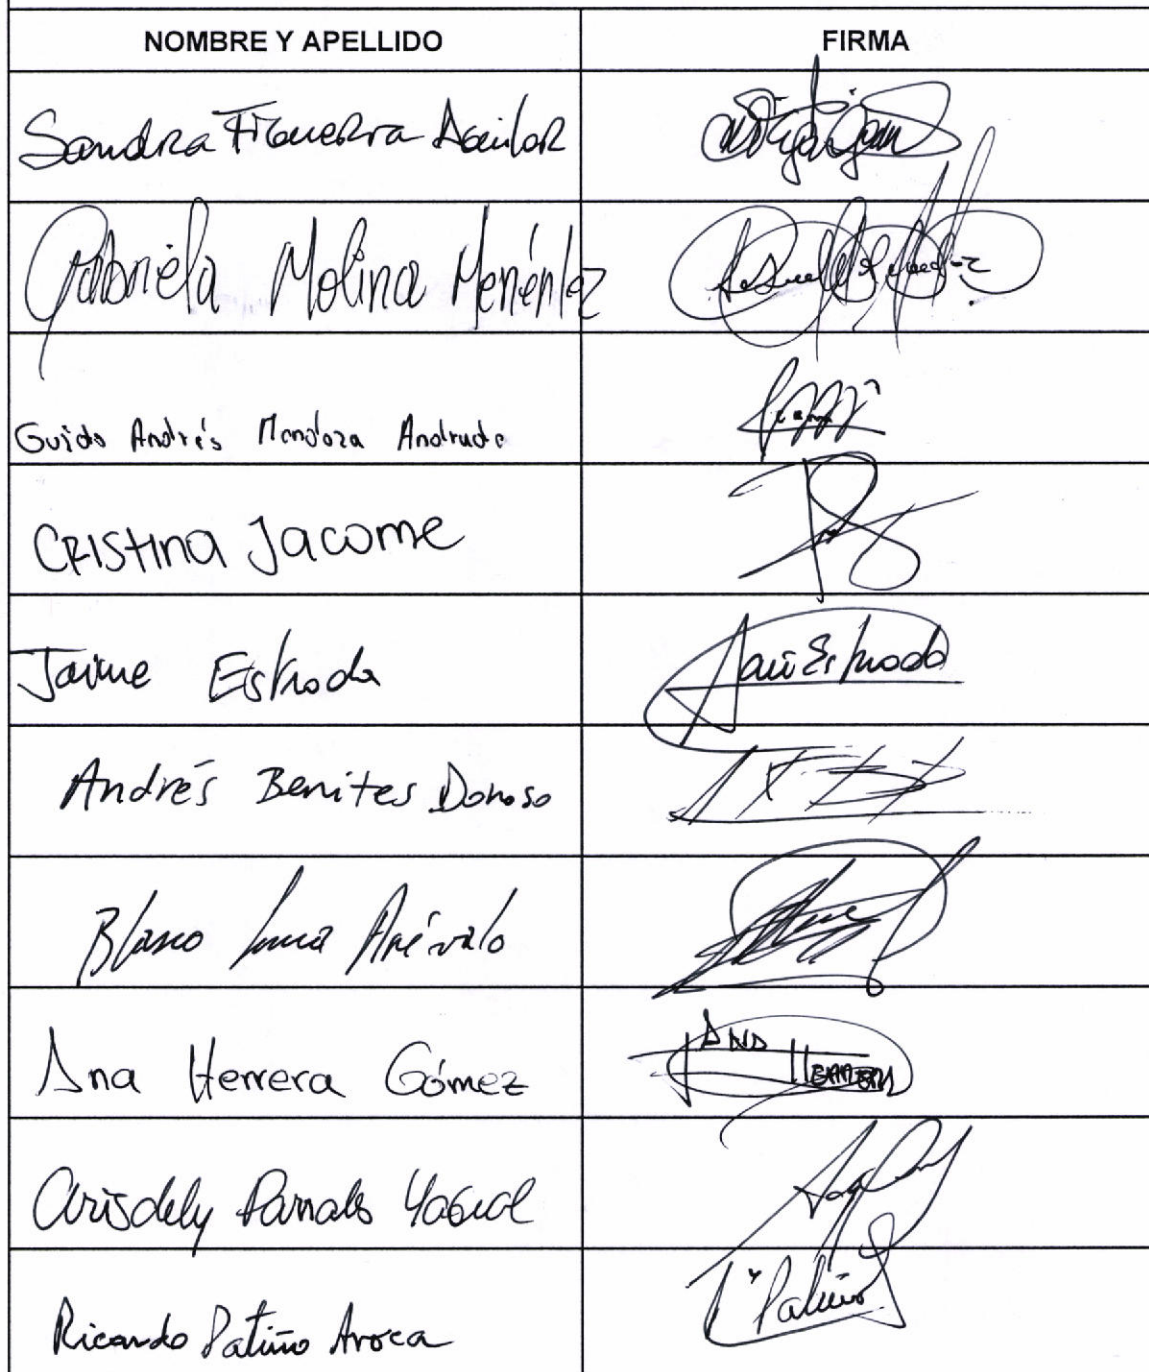 NOMBRE Y APELLIDO FIRMA
Sandra Figuerra Aguilar
Gabriela Molina Menéndez
Guido Andrés Mendoza Andrade
Cristina Jacome
Jaime Estrada Jaime Estrada
Andrés Benites Donoso
Blasco Luna Arévalo
Ana Herrera Gómez Ana Herrera
Arisdely Parrales Yagual
Ricardo Patiño Aroca Patiño